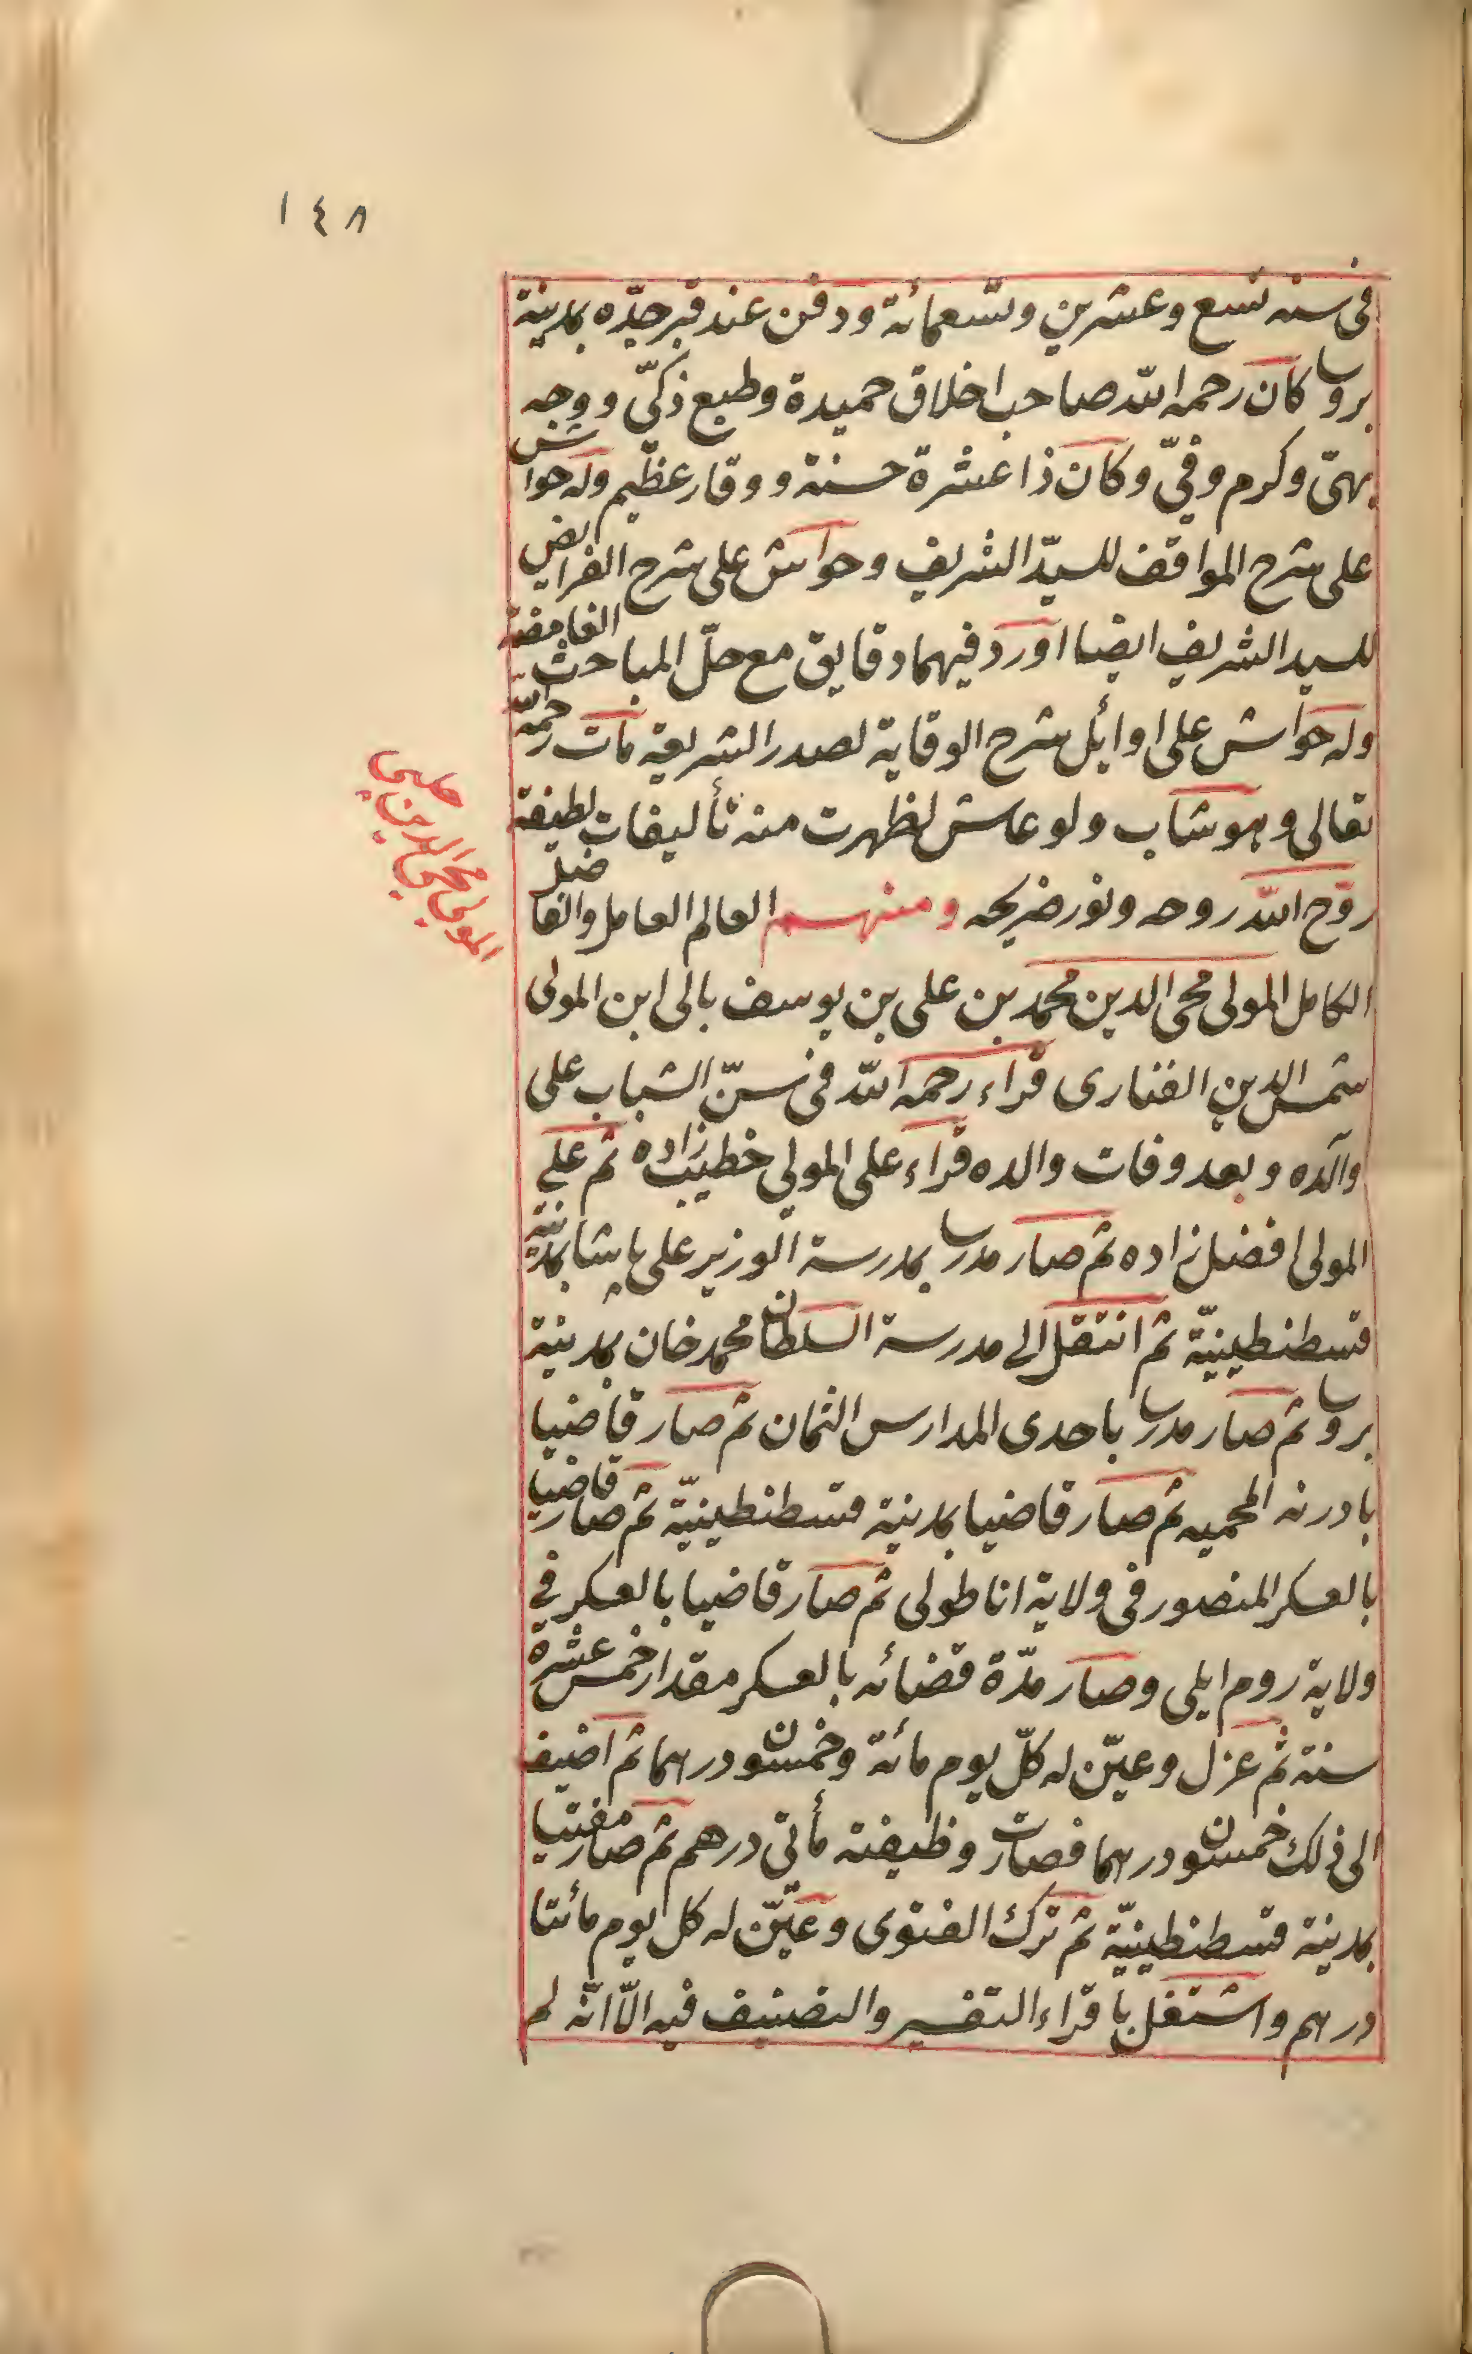 ١٤٨
فى سنه تسع وعشرين وتسعمائة ودفن عند قبر جدّه بمدينة
بروسا كان رحمه الله صاحب اخلاق حميدة وطبع ذكىّ ووجه
بهىّ وكرم وفىّ وكان ذا عشرة حسنة ووقار عظيم وله حواش
على شرح المواقف للسيّد الشريف وحواش على شرح الفرايض
للسيد الشريف ايضا اورد فيهما دقايق مع حلّ المباحث الغامضة
وله حواش على اوائل شرح الوقاية لصدر الشريعة مات رحمه الله
تعالى وهو شاب ولو عاش لظهرت منه تأليفات لطيفة
روّح الله روحه ونور ضريحه ومنهم العالم العامل والفاضل
الكامل المولى محى الدين محمد بن على بن يوسف بالى ابن المولى
شمس الدين الفنارى قراء رحمه الله فى سنّ الشباب على
والده وبعد وفات والده قراء على المولى خطيب زاده ثم على
المولى افضل زاده ثم صار مدرسا بمدرسة الوزير على پاشا بمدينة
قسطنطينيّة ثم انتقل الى مدرسة السلطان محمد خان بمدينة
بروسا ثم صار مدرسا باحدى المدارس الثمان ثم صار قاضيا
بادرنه المحميه ثم صار قاضيا بمدينة قسطنطينيّة ثم صار قاضيا
بالعسكر المنصور فى ولاية اناطولى ثم صار قاضيا بالعسكر فى
ولاية روم ايلى وصار مدّة قضائه بالعسكر مقدار خمس عشرة
سنة ثم عزل وعيّن له كلّ يوم مائة وخمسون درهما ثم اضيف
الى ذلك خمسون درهما فصارت وظيفته مأتى درهم ثم صار مفتيا
بمدينة قسطنطينيّة ثم ترك الفتوى وعيّن له كل يوم مائتا
درهم واشتغل باقراء التفسير والتصنيف فيه الّا انّه لم
المولى محى الدين چلبى